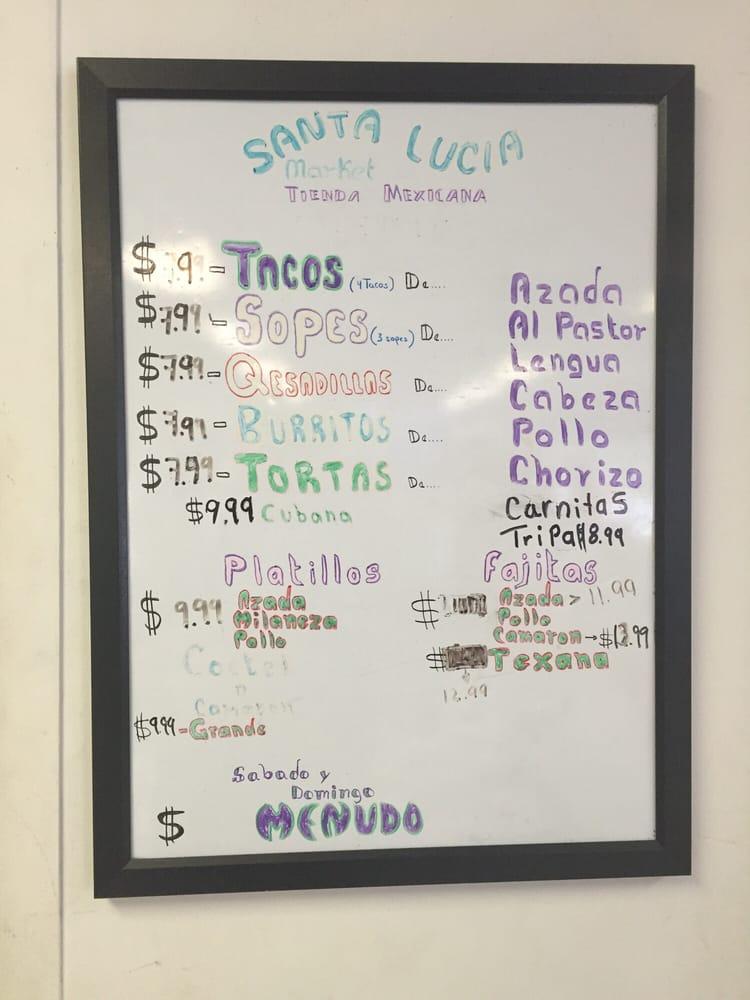 SANTA LUCIA
Market
TIENDA MEXICANA
$ .9 - TACOS (4 Tacos) De....
$7.99 - SOPES (3 sopes) De....
$7.99 - QESADILLAS De....
$7.99 - BURRITOS De....
$7.99 - TORTAS De....
$9.99 Cubana
Azada
Al Pastor
Lengua
Cabeza
Pollo
Chorizo
Carnitas
Tripa $8.99
Platillos
$ 9.99 Azada
Milaneza
Pollo
Coctel
Camaron
$9.99 - Grande
Fajitas
$ Azada > 11.99
Pollo
Camaron → $13.99
$ Texana
12.99
Sabado y
Domingo
$ MENUDO